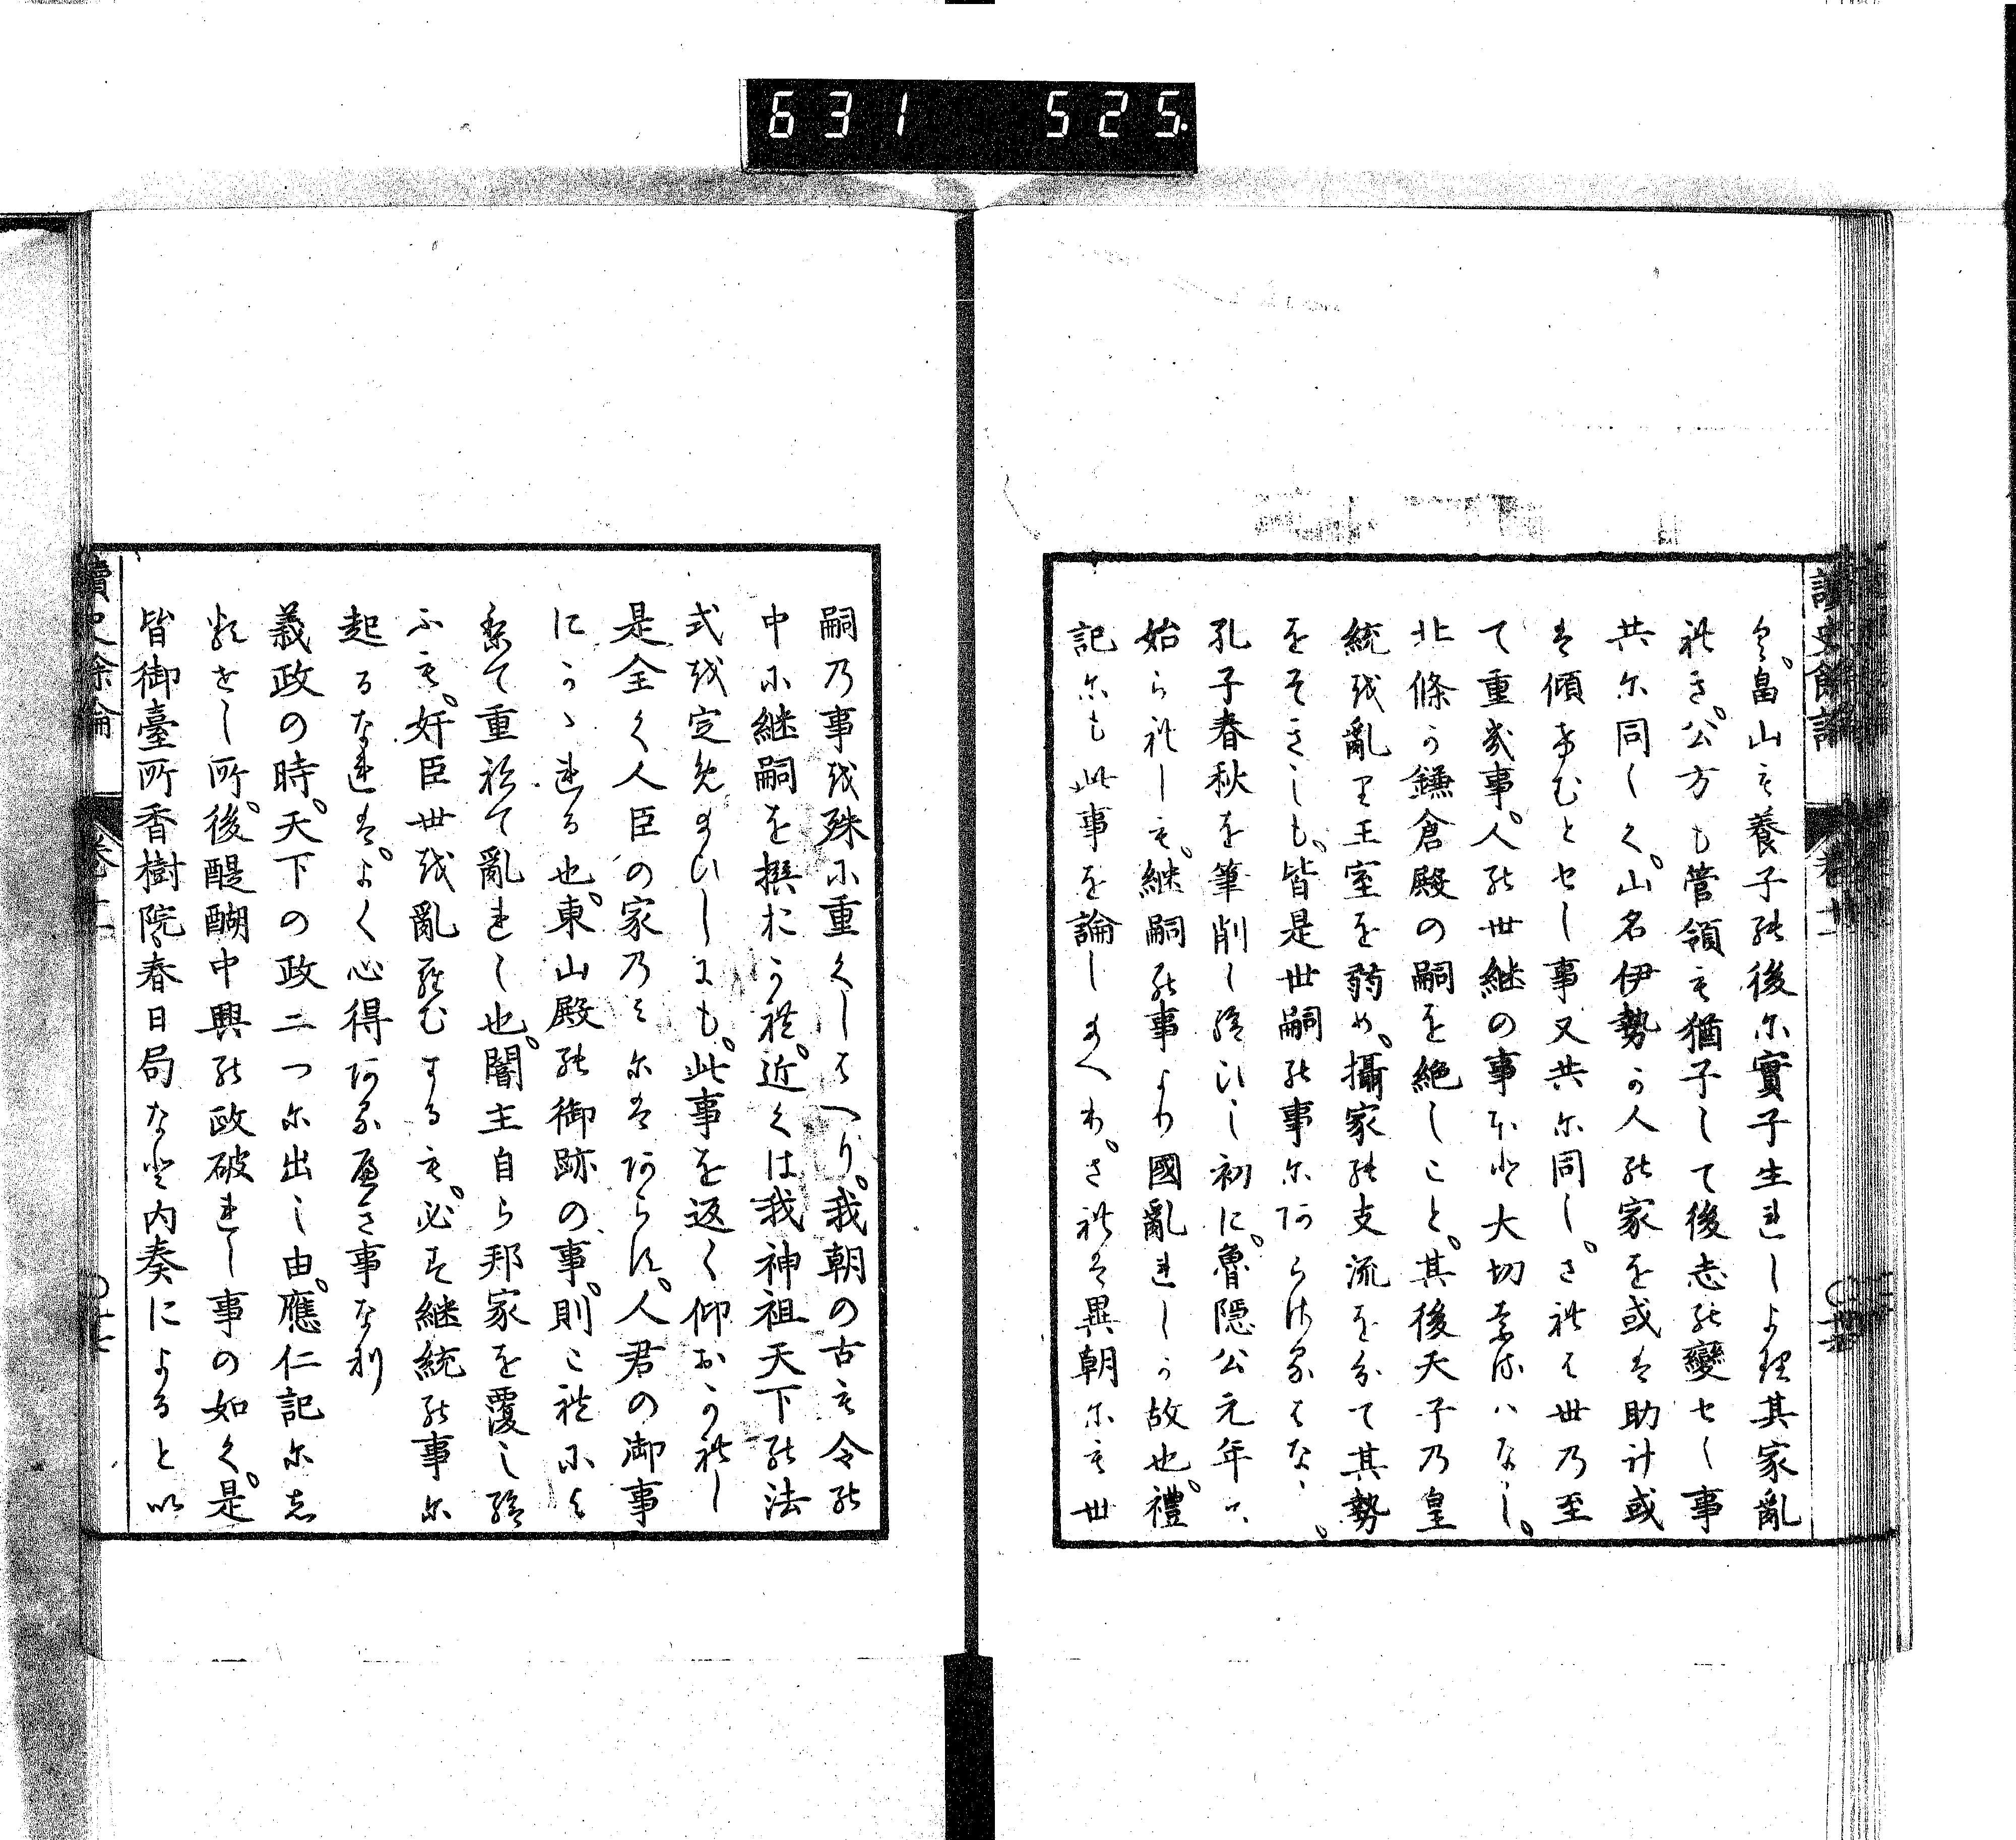 631 525.
讀史餘論
り。畠山は養子の後に實子生れしより其家亂
れき。公方も管領は猶子して後志の變せし事
共に同しく。山名伊勢か人の家を或は助け或
は傾けむとせし事又共に同し。されは世乃至
て重き事。人の世継の事ほと大切なるハなし。
北條か鎌倉殿の嗣を絶しこと。其後天子乃皇
統を亂り王室を弱め。攝家の支流を分て其勢
をそきしも。皆是世嗣の事にあらさるはな
孔子春秋を筆削し給ひし初に。魯隱公元年に
始られしは。継嗣の事より國亂れしか故也。禮
記にも此事を論しまへり。されは異朝には世
嗣乃事を殊に重くしまへり。我朝の古は令の
中に継嗣を撰おかれ。近くは我神祖天下の法
式を定めまひしにも。此事を返く仰おかれし
是全く人臣の家乃みにはあらす。人君の御事
にかゝれる也。東山殿の御跡の事。則これによ
りて重ねて亂れし也。闇主自ら邦家を覆し給
ふは。奸臣世を亂らむするは。必す継統の事に
起るなれは。よく心得あるへき事なり
義政の時。天下の政二つに出し由。應仁記にし
るせし所。後醍醐中興の政破れし事の如く。是
皆御臺所香樹院春日局なと内奏によると以
讀史餘論 卷十一